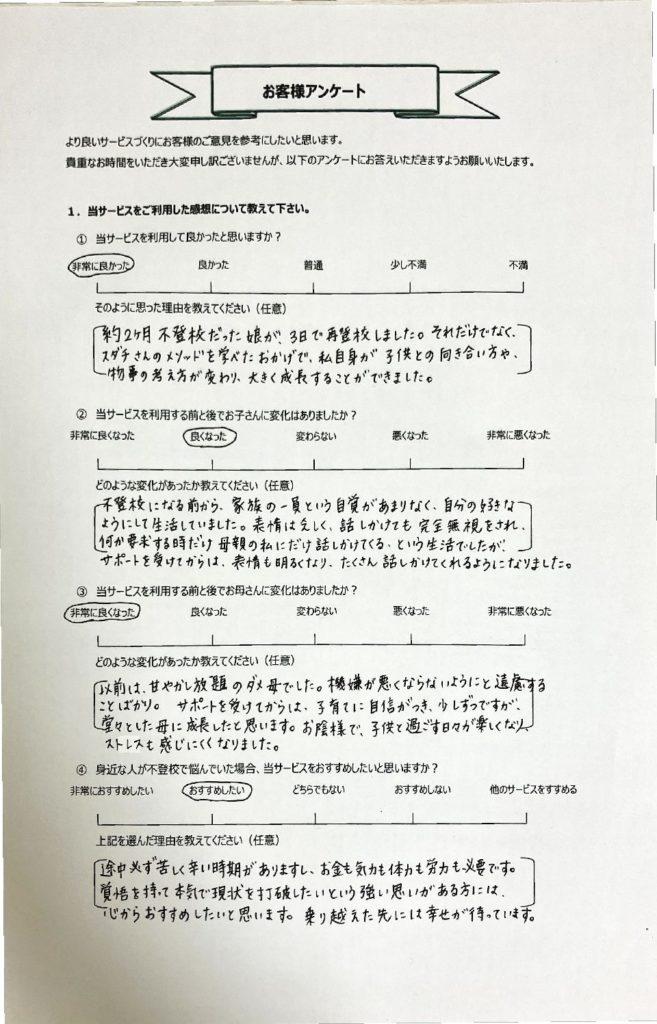 お客様アンケート
より良いサービスづくりにお客様のご意見を参考にしたいと思います。
貴重なお時間をいただき大変申し訳ございませんが、以下のアンケートにお答えいただきますようお願いいたします。
1．当サービスをご利用した感想について教えて下さい。
① 当サービスを利用して良かったと思いますか？
非常に良かった 良かった 普通 少し不満 不満
そのように思った理由を教えてください（任意）
約2ヶ月 不登校だった娘が、3日で再登校しました。それだけでなく、
スダチさんのメソッドを学べたおかげで、私自身が 子供との向き合い方や、
物事の考え方が変わり、大きく成長することができました。
② 当サービスを利用する前と後でお子さんに変化はありましたか？
非常に良くなった 良くなった 変わらない 悪くなった 非常に悪くなった
どのような変化があったか教えてください（任意）
不登校になる前から、家族の一員という自覚があまりなく、自分の好きな
ようにして生活していました。表情は乏しく、話しかけても 完全無視をされ、
何か要求する時だけ 母親の私にだけ話しかけてくる、という生活でしたが、
サポートを受けてからは、表情も明るくなり、たくさん 話しかけてくれるようになりました。
③ 当サービスを利用する前と後でお母さんに変化はありましたか？
非常に良くなった 良くなった 変わらない 悪くなった 非常に悪くなった
どのような変化があったか教えてください（任意）
以前は、甘やかし放題のダメ母でした。機嫌が悪くならないようにと遠慮する
ことばかり。 サポートを受けてからは、子育てに自信がつき、少しずつですが、
堂々とした母に成長したと思います。お陰様で、子供と過ごす日々が楽しくなり、
ストレスも感じにくくなりました。
④ 身近な人が不登校で悩んでいた場合、当サービスをおすすめしたいと思いますか？
非常におすすめしたい おすすめしたい どちらでもない おすすめしない 他のサービスをすすめる
上記を選んだ理由を教えてください（任意）
途中必ず苦しく辛い時期がありますし、お金も気力も体力も労力も必要です。
覚悟を持って本気で現状を打破したいという強い思いがある方には、
心からおすすめしたいと思います。乗り越えた先には幸せが待っています。